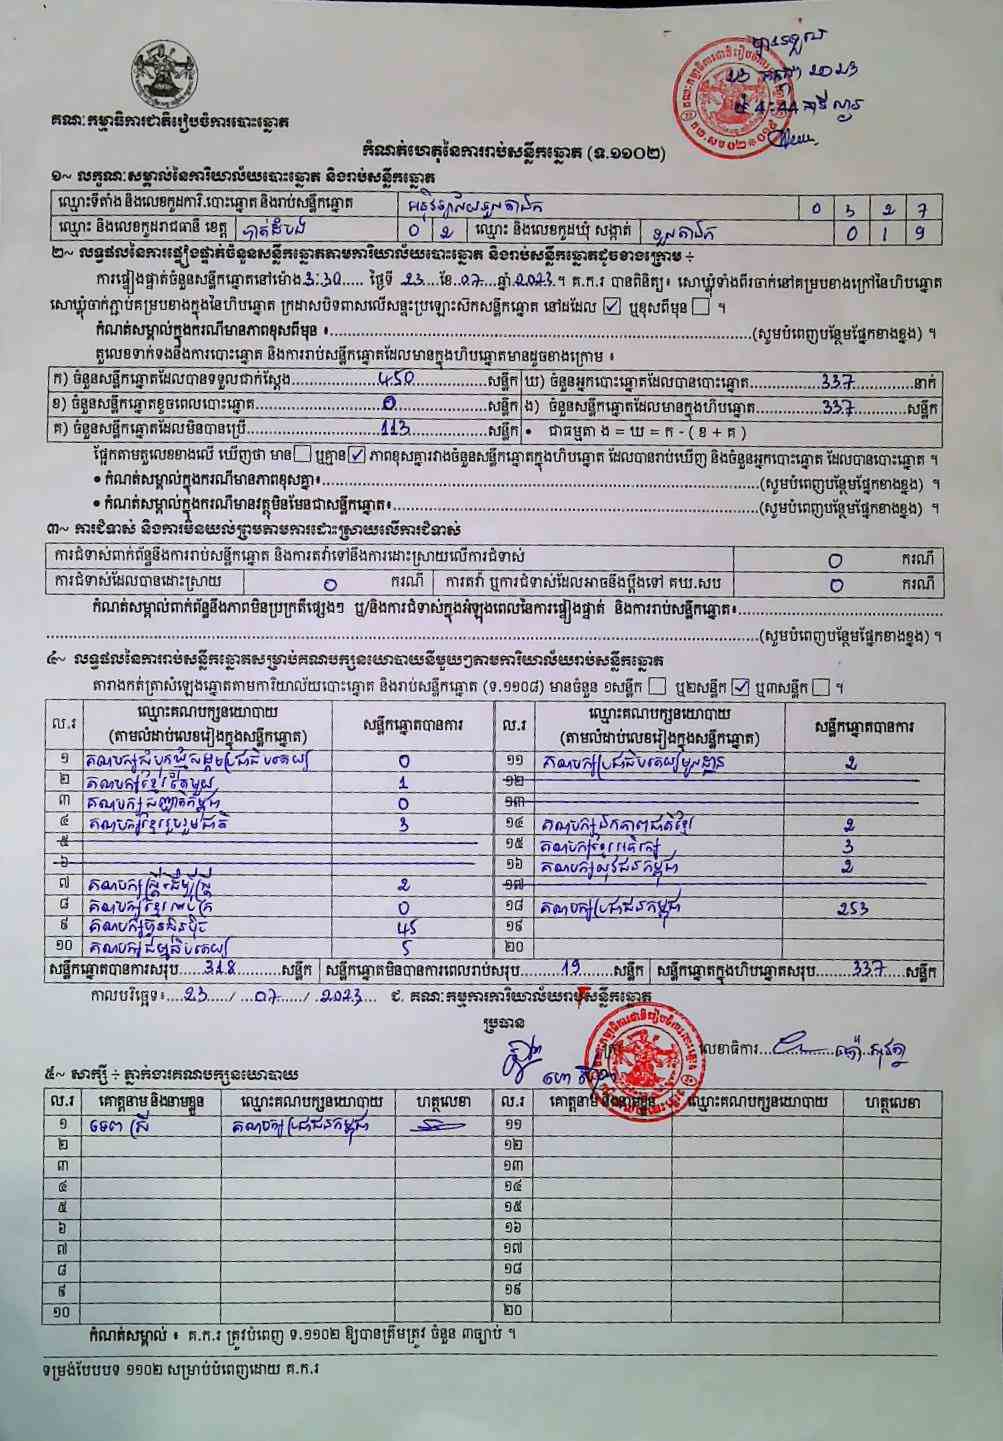 បានទទួល
២៣ កក្កដា 2023
ម៉ 4:44 នាទី ល្ងាច
គណៈកម្មាធិការជាតិរៀបចំការបោះឆ្នោត
កំណត់ហេតុនៃការរាប់សន្លឹកឆ្នោត (ទ.១១០២)
១~ លក្ខណៈសម្គាល់នៃការិយាល័យបោះឆ្នោត និងរាប់សន្លឹកឆ្នោត
ឈ្មោះទីតាំង និងលេខកូដការិ.បោះឆ្នោត និងរាប់សន្លឹកឆ្នោត អនុវិទ្យាល័យទួលតាឯក 0 3 2 7
ឈ្មោះ និងលេខកូដរាជធានី ខេត្ត បាត់ដំបង 0 2 ឈ្មោះ និងលេខកូដឃុំ សង្កាត់ ទួលតាឯក 0 1 9
២~ លទ្ធផលនៃការផ្ទៀងផ្ទាត់ចំនួនសន្លឹកឆ្នោតតាមការិយាល័យបោះឆ្នោត និងរាប់សន្លឹកឆ្នោតដូចខាងក្រោម ÷
ការផ្ទៀងផ្ទាត់ចំនួនសន្លឹកឆ្នោតនៅម៉ោង 3:30 ថ្ងៃទី 23 ខែ 07 ឆ្នាំ 2023 ។ គ.ក.រ បានពិនិត្យ៖ សោឃ្លុំទាំងពីរចាក់នៅគម្របខាងក្រៅនៃហិបឆ្នោត
សោឃ្លុំចាក់ភ្ជាប់គម្របខាងក្នុងនៃហិបឆ្នោត ក្រដាសបិទពាសលើសន្ទះប្រឡោះស៊កសន្លឹកឆ្នោត នៅដដែល ☑ ឬខុសពីមុន ☐ ។
កំណត់សម្គាល់ក្នុងករណីមានភាពខុសពីមុន ៖ (សូមបំពេញបន្ថែមផ្នែកខាងខ្នង) ។
តួលេខទាក់ទងនឹងការបោះឆ្នោត និងការរាប់សន្លឹកឆ្នោតដែលមានក្នុងហិបឆ្នោតមានដូចខាងក្រោម ៖
ក) ចំនួនសន្លឹកឆ្នោតដែលបានទទួលជាក់ស្តែង 450 សន្លឹក ឃ) ចំនួនអ្នកបោះឆ្នោតដែលបានបោះឆ្នោត 337 នាក់
ខ) ចំនួនសន្លឹកឆ្នោតខូចពេលបោះឆ្នោត 0 សន្លឹក ង) ចំនួនសន្លឹកឆ្នោតដែលមានក្នុងហិបឆ្នោត 337 សន្លឹក
គ) ចំនួនសន្លឹកឆ្នោតដែលមិនបានប្រើ 113 សន្លឹក • ជាធម្មតា ង = ឃ = ក - ( ខ + គ )
ផ្អែកតាមតួលេខខាងលើ ឃើញថា មាន ☐ ឬគ្មាន ☑ ភាពខុសគ្នារវាងចំនួនសន្លឹកឆ្នោតក្នុងហិបឆ្នោត ដែលបានរាប់ឃើញ និងចំនួនអ្នកបោះឆ្នោត ដែលបានបោះឆ្នោត ។
• កំណត់សម្គាល់ក្នុងករណីមានភាពខុសគ្នា៖ (សូមបំពេញបន្ថែមផ្នែកខាងខ្នង) ។
• កំណត់សម្គាល់ក្នុងករណីមានវត្ថុមិនមែនជាសន្លឹកឆ្នោត៖ (សូមបំពេញបន្ថែមផ្នែកខាងខ្នង) ។
៣~ ការជំទាស់ និងការមិនយល់ព្រមតាមការដោះស្រាយលើការជំទាស់
ការជំទាស់ពាក់ព័ន្ធនឹងការរាប់សន្លឹកឆ្នោត និងការតវ៉ាទៅនឹងការដោះស្រាយលើការជំទាស់ 0 ករណី
ការជំទាស់ដែលបានដោះស្រាយ 0 ករណី ការតវ៉ា ឬការជំទាស់ដែលអាចនឹងប្តឹងទៅ គឃ.សប 0 ករណី
កំណត់សម្គាល់ពាក់ព័ន្ធនឹងភាពមិនប្រក្រតីផ្សេងៗ ឬ/និងការជំទាស់ក្នុងអំឡុងពេលនៃការផ្ទៀងផ្ទាត់ និងការរាប់សន្លឹកឆ្នោត៖
(សូមបំពេញបន្ថែមផ្នែកខាងខ្នង) ។
៤~ លទ្ធផលនៃការរាប់សន្លឹកឆ្នោតសម្រាប់គណបក្សនយោបាយនីមួយៗតាមការិយាល័យរាប់សន្លឹកឆ្នោត
តារាងកត់ត្រាសំឡេងឆ្នោតតាមការិយាល័យបោះឆ្នោត និងរាប់សន្លឹកឆ្នោត (ទ.១១០៨) មានចំនួន ១សន្លឹក ☐ ឬ២សន្លឹក ☑ ឬ៣សន្លឹក ☐ ។
ល.រ ឈ្មោះគណបក្សនយោបាយ (តាមលំដាប់លេខរៀងក្នុងសន្លឹកឆ្នោត) សន្លឹកឆ្នោតបានការ ល.រ ឈ្មោះគណបក្សនយោបាយ (តាមលំដាប់លេខរៀងក្នុងសន្លឹកឆ្នោត) សន្លឹកឆ្នោតបានការ
១ គណបក្សសំបុកឃ្មុំសង្គមប្រជាធិបតេយ្យ 0 ១១ គណបក្សប្រជាធិបតេយ្យមូលដ្ឋាន 2
២ គណបក្សខ្មែរតែមួយ 1 ១២
៣ គណបក្សសញ្ជាតិកម្ពុជា 0 ១៣
៤ គណបក្សខ្មែររួបរួមជាតិ 3 ១៤ គណបក្សឯកភាពជាតិខ្មែរ 2
៥ ១៥ គណបក្សខ្មែរអភិរក្ស 3
៦ ១៦ គណបក្សយុវជនកម្ពុជា 2
៧ គណបក្សស្ត្រីដើម្បីស្ត្រី 2 ១៧
៨ គណបក្សខ្មែរឈប់ក្រ 0 ១៨ គណបក្សប្រជាជនកម្ពុជា 253
៩ គណបក្សហ្វ៊ុនស៊ិនប៉ិច 45 ១៩
១០ គណបក្សធម្មាធិបតេយ្យ 5 ២០
សន្លឹកឆ្នោតបានការសរុប 318 សន្លឹក សន្លឹកឆ្នោតមិនបានការពេលរាប់សរុប 19 សន្លឹក សន្លឹកឆ្នោតក្នុងហិបឆ្នោតសរុប 337 សន្លឹក
កាលបរិច្ឆេទ៖ 23 / 07 / 2023 ជ. គណៈកម្មការការិយាល័យរាប់សន្លឹកឆ្នោត
ប្រធាន
លេខាធិការ
៥~ សាក្សី ÷ ភ្នាក់ងារគណបក្សនយោបាយ
ល.រ គោត្តនាម និងនាមខ្លួន ឈ្មោះគណបក្សនយោបាយ ហត្ថលេខា ល.រ គោត្តនាម និងនាមខ្លួន ឈ្មោះគណបក្សនយោបាយ ហត្ថលេខា
១ ទេព ស្រី គណបក្សប្រជាជនកម្ពុជា ១១
២ ១២
៣ ១៣
៤ ១៤
៥ ១៥
៦ ១៦
៧ ១៧
៨ ១៨
៩ ១៩
១០ ២០
កំណត់សម្គាល់ ៖ គ.ក.រ ត្រូវបំពេញ ទ.១១០២ ឱ្យបានត្រឹមត្រូវ ចំនួន ៣ច្បាប់ ។
ទម្រង់បែបបទ ១១០២ សម្រាប់បំពេញដោយ គ.ក.រ